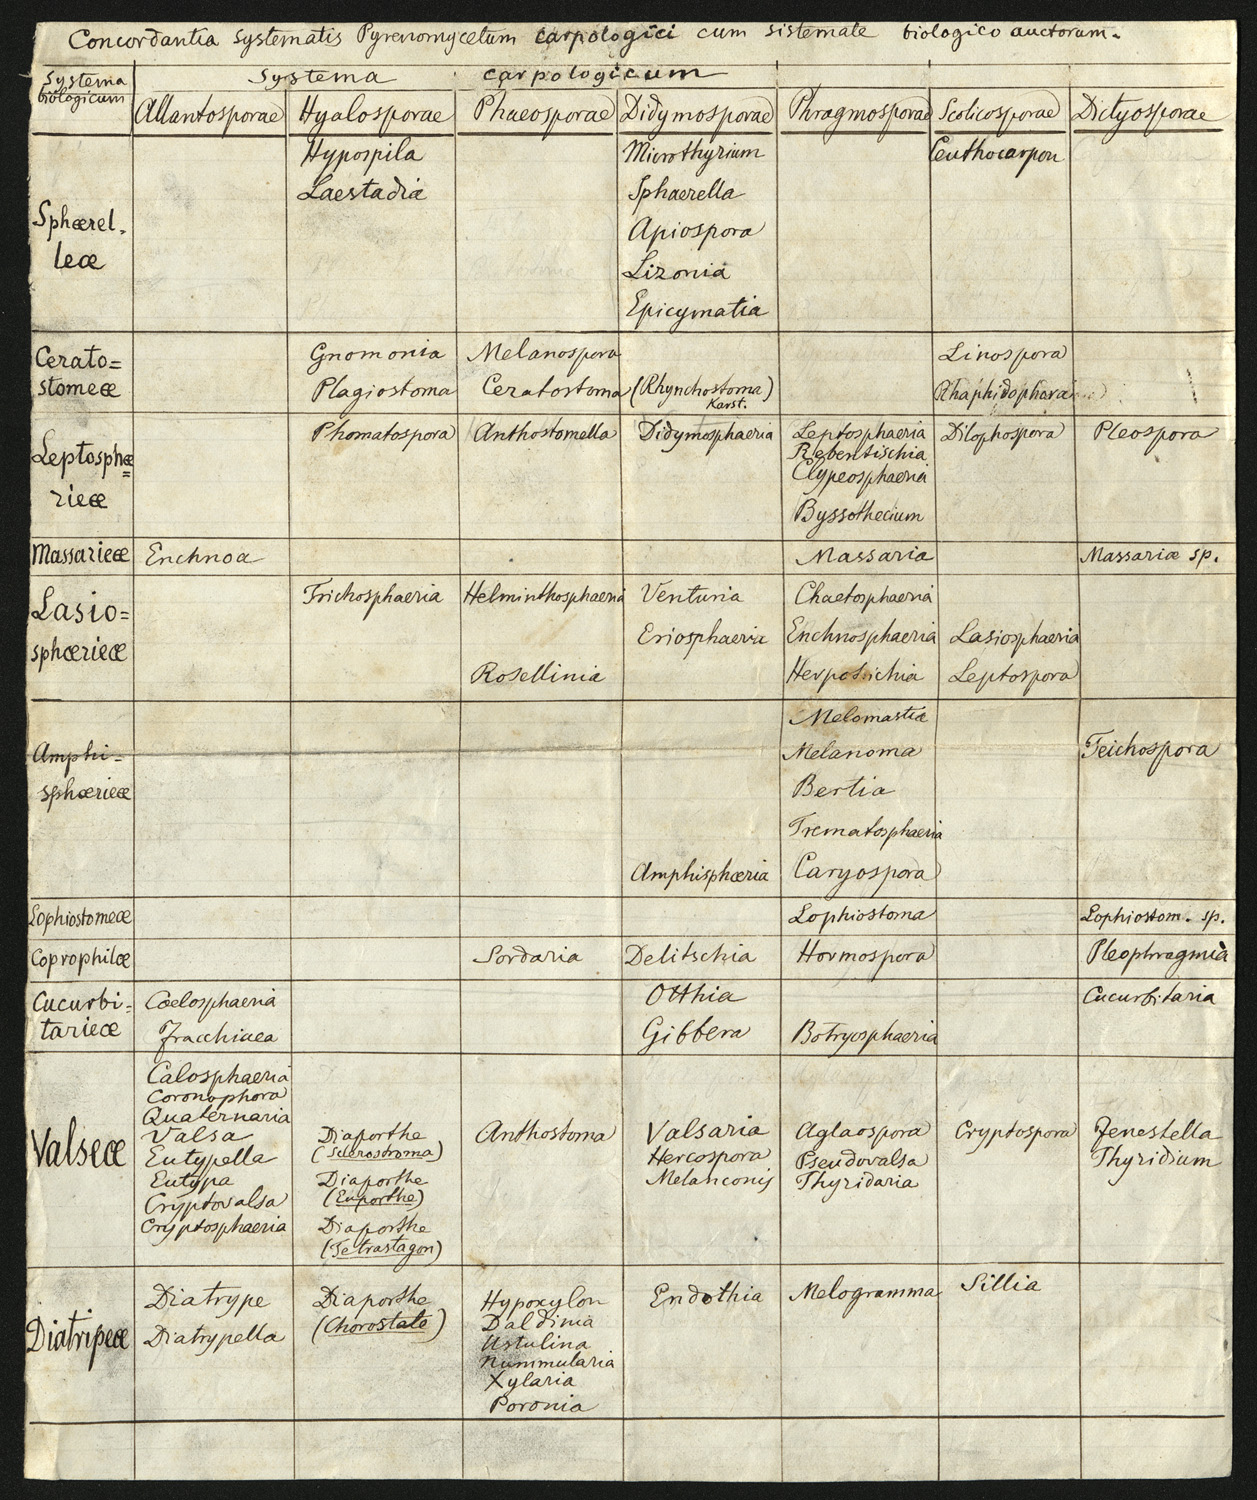 Concordantia systematis Pyrenomycetum carpologici cum sistemate biologico auctorum.
Systema biologicum
Systema carpologicum
Allantosporae Hyalosporae Phaeosporae Didymosporae Phragmosporae Scolicosporae Dictyosporae
Sphærel-
leæ
Hypospila
Laestadia
Microthyrium
Sphaerella
Apiospora
Lizonia
Epicymatia
Ceuthocarpon
Cerato=
stomeæ
Gnomonia
Plagiostoma
Melanospora
Ceratostoma
(Rhynchostoma)
Karst.
Linospora
Rhaphidophora
Leptosphæ=
rieæ
Phomatospora
Anthostomella
Didymosphaeria
Leptosphaeria
Rebentischia
Clypeosphaeria
Byssothecium
Dilophospora
Pleospora
Massarieæ
Enchnoa
Massaria
Massariæ sp.
Lasio=
sphærieæ
Trichosphaeria
Helminthosphaeria
Rosellinia
Venturia
Eriosphaeria
Chaetosphaeria
Enchnosphaeria
Herpotrichia
Lasiosphaeria
Leptospora
Amphi-
sphærieæ
Amphisphæria
Melomastia
Melanoma
Bertia
Trematosphaeria
Caryospora
Teichospora
Lophiostomeæ
Lophiostoma
Lophiostom. sp.
Coprophilæ
Sordaria
Delitschia
Hormospora
Pleophragmia
Cucurbi=
tarieæ
Coelosphaeria
Fracchiaea
Otthia
Gibbera
Botryosphaeria
Cucurbitaria
Valseæ
Calosphaeria
Coronophora
Quaternaria
Valsa
Eutypella
Eutypa
Cryptovalsa
Cryptosphaeria
Diaporthe
(Sclerostroma)
Diaporthe
(Euporthe)
Diaporthe
(Tetrastagon)
Anthostoma
Valsaria
Hercospora
Melanconis
Aglaospora
Pseudovalsa
Thyridaria
Cryptospora
Fenestella
Thyridium
Diatripeæ
Diatrype
Diatrypella
Diaporthe
(Chorostate)
Hypoxylon
Daldinia
Ustulina
Nummularia
Xylaria
Poronia
Endothia
Melogramma
Sillia